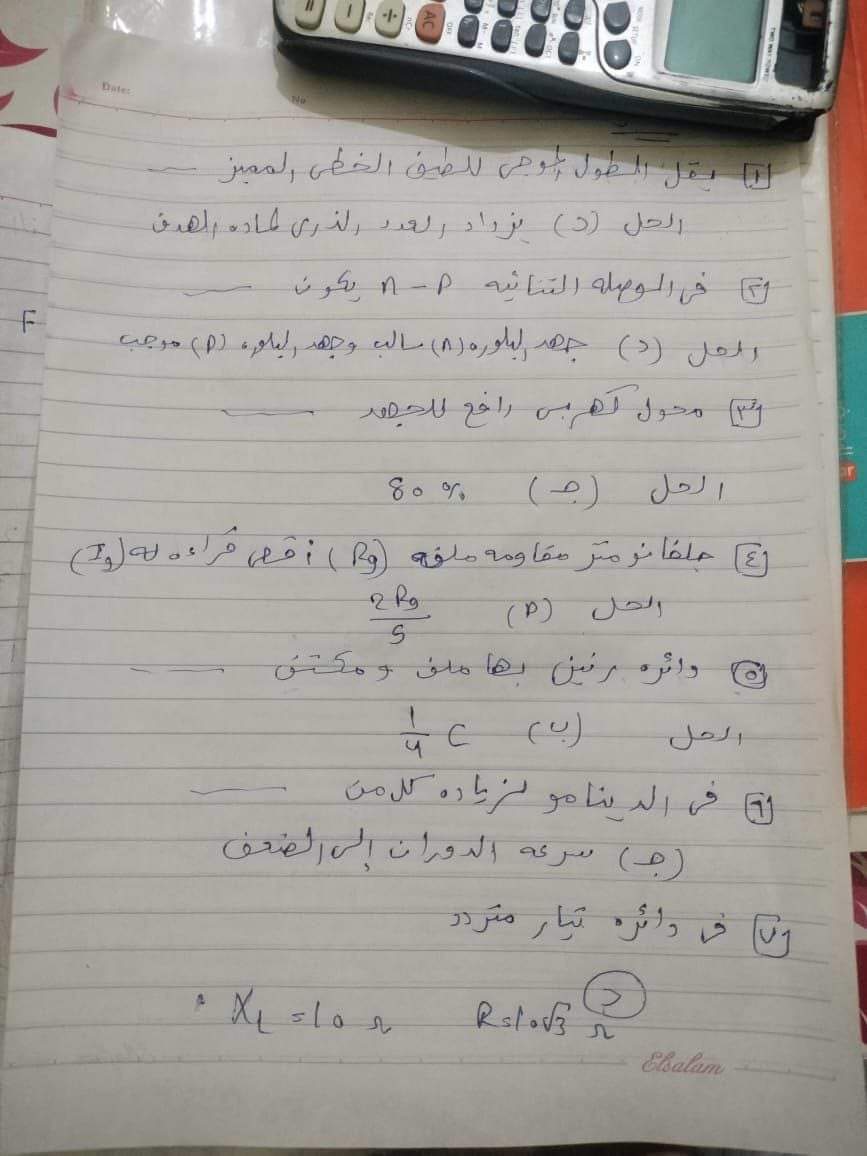 Date:
No
١ يقل الطول الموجى للطيف الخطى المميز —
الحل (د) يزداد العدد الذرى لماده الهدف
٢ فى الوصله الثنائيه n - P يكون —
الحل (د) جهد البلوره (n) سالب وجهد البلوره (P) موجب
٣ محول كهربى رافع للجهد —
الحل (جـ) 80 %
٤ جلفانومتر مقاومه ملفه (Rg) أقصى قراءه له (Ig)
الحل (P) 2Rg/5
٥ دائره رنين بها ملف ومكثف —
الحل (ب) 1/4 C
٦ فى الدينامو لزياده كل من —
(جـ) سرعه الدوران إلى الضعف
٧ فى دائره تيار متردد
د
XL = 10 Ω R = 10√3 Ω
Elsalam
F
AC
OFF
ON